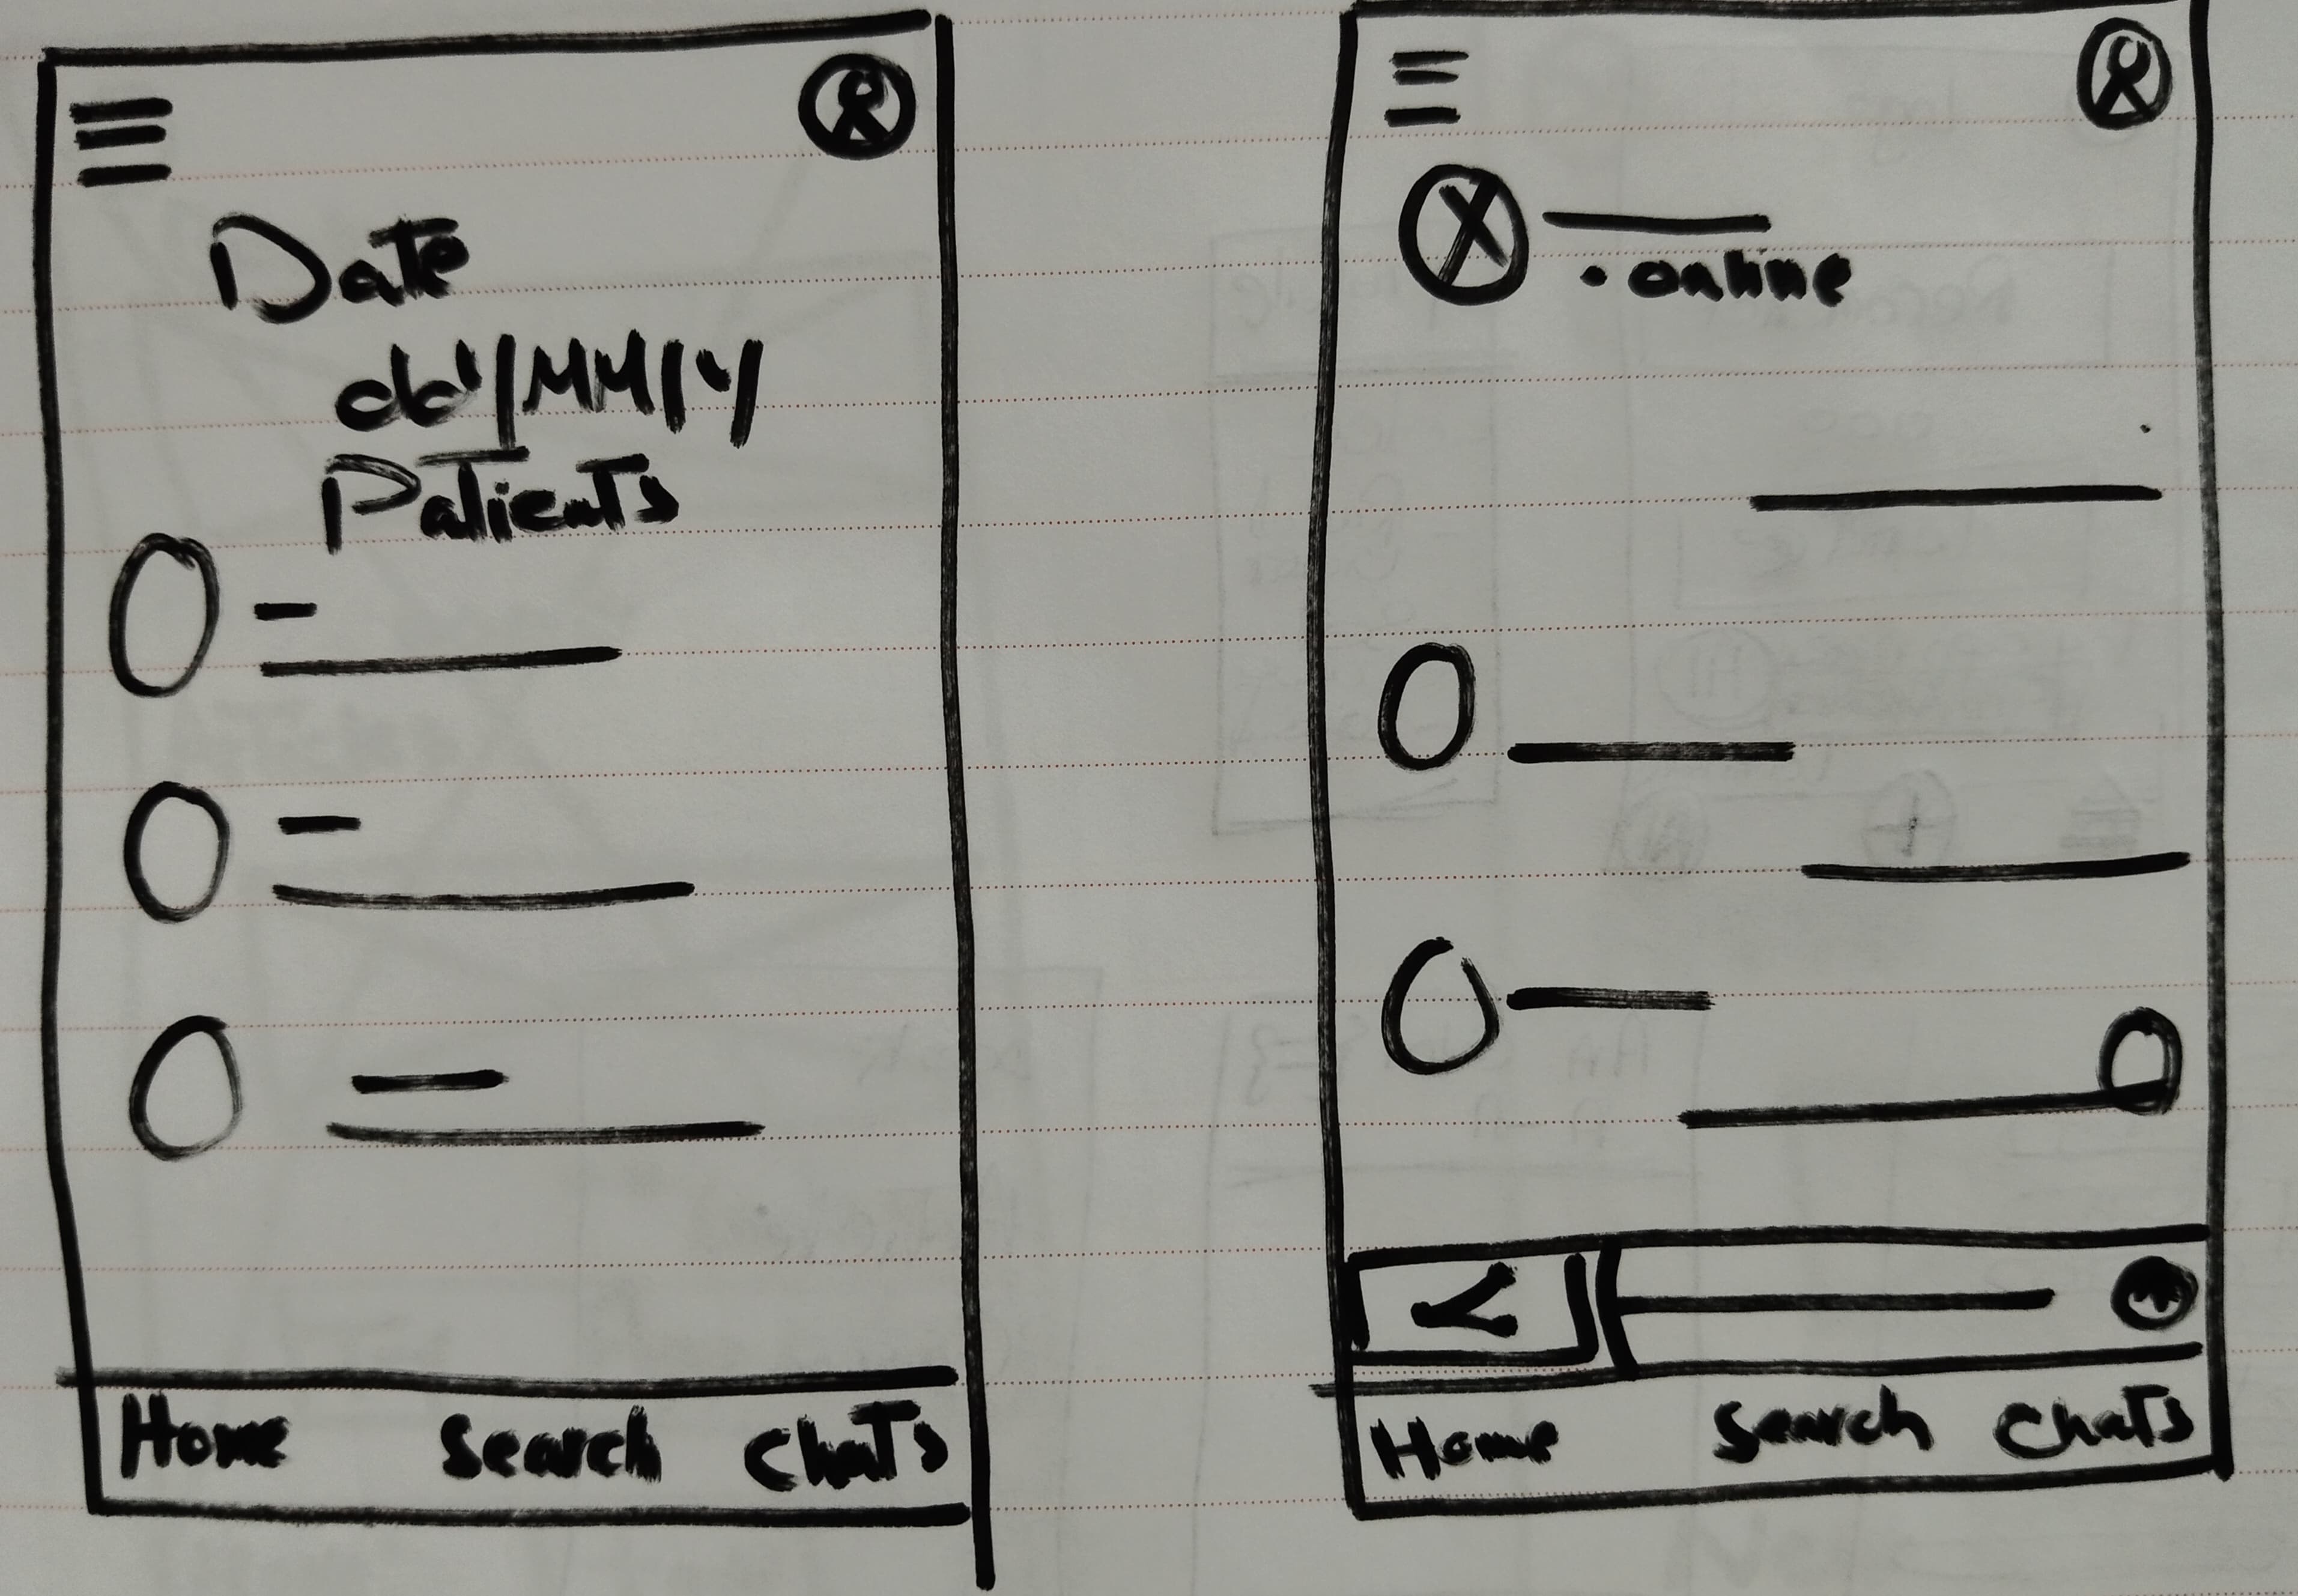 Date
dd/MM/y
Patients
Home Search Chats
. online
Home Search Chats